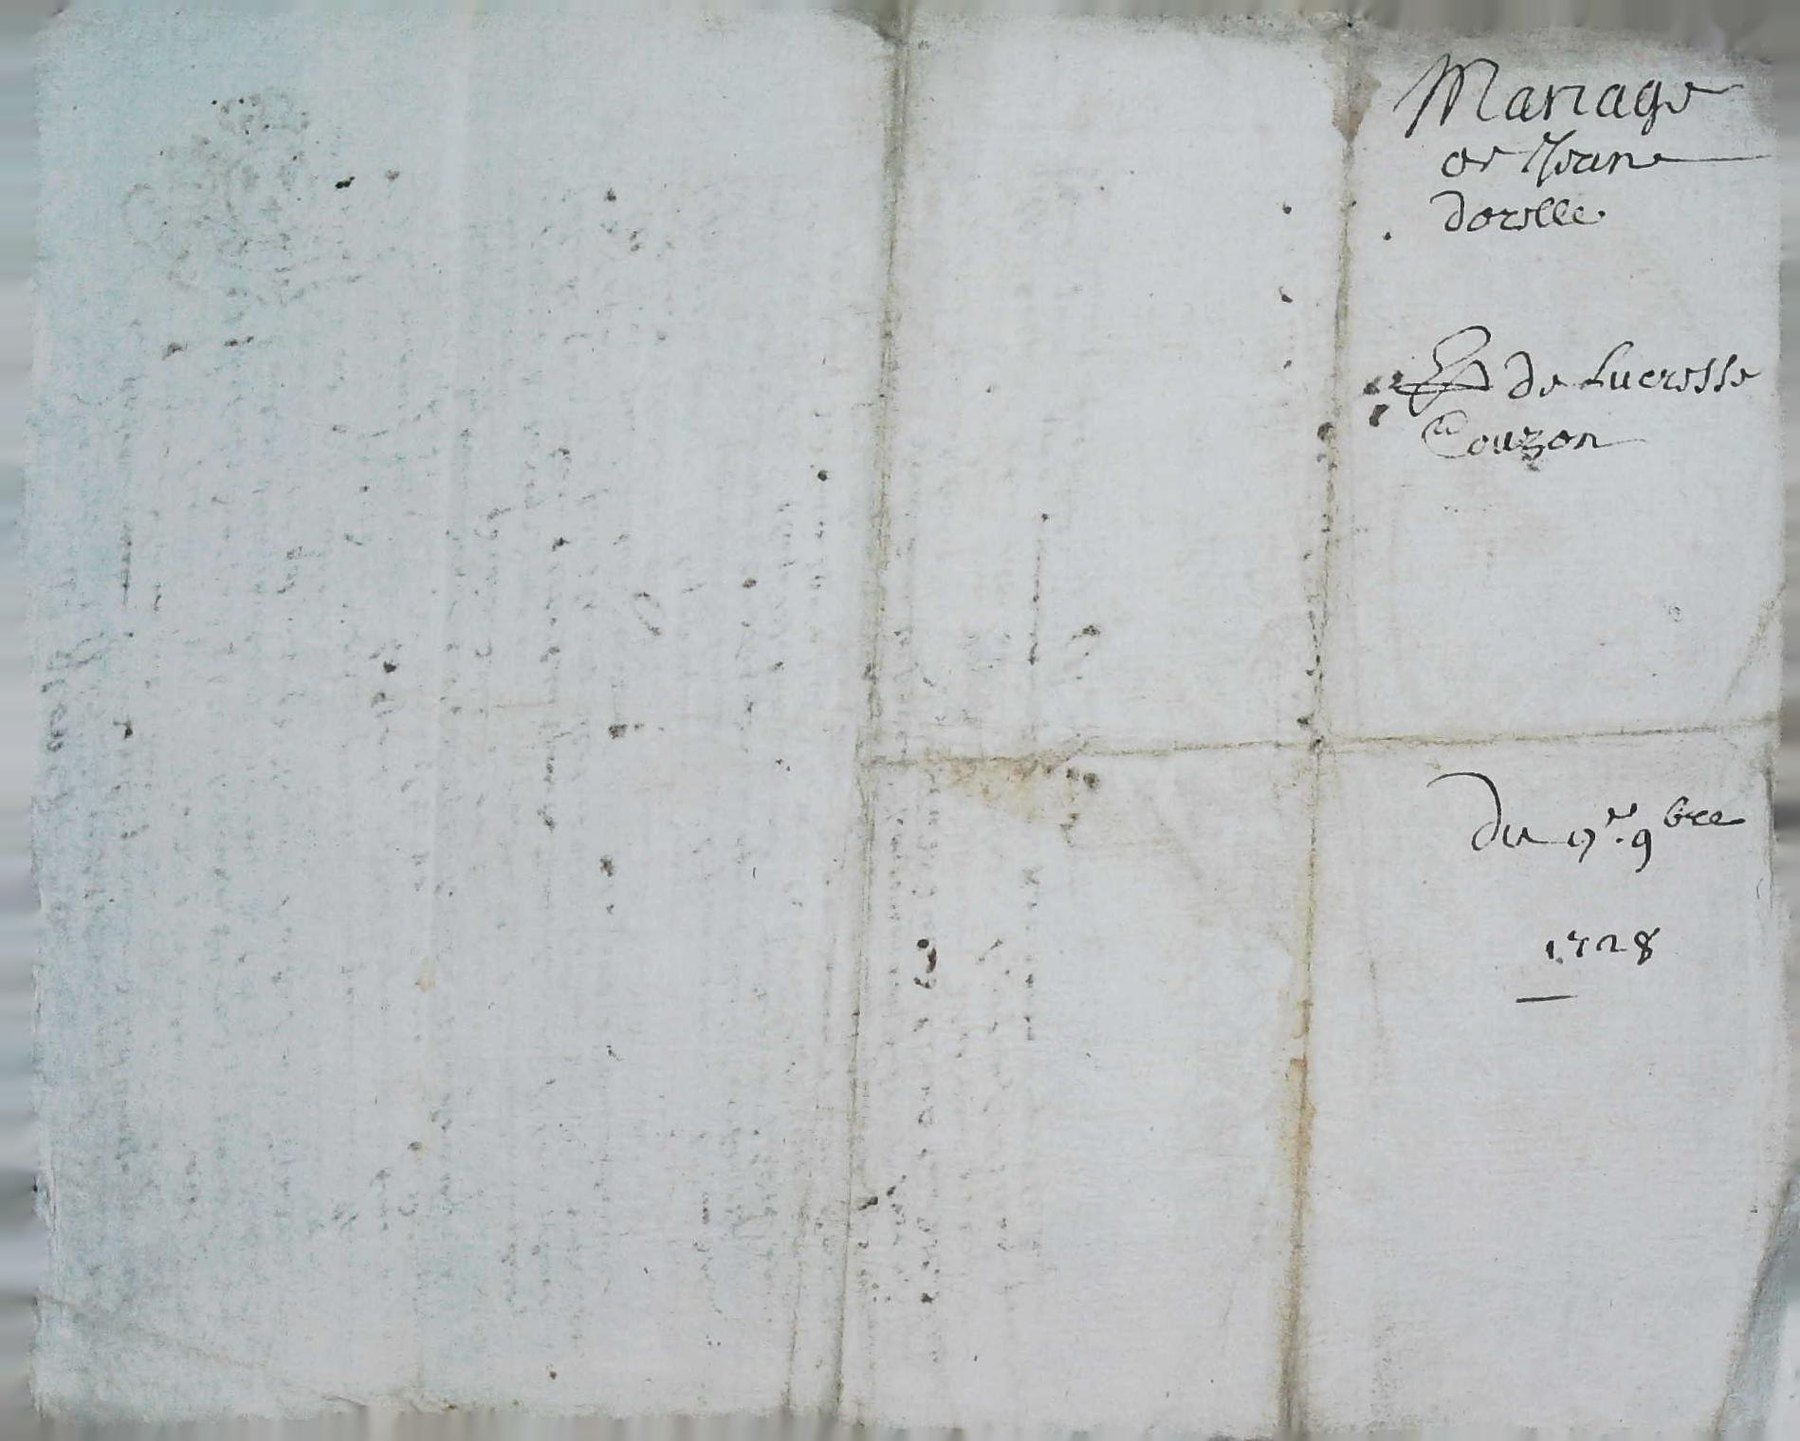 Mariage
de Jean
dorelle
Et de Lucresse
Couzon
Du 9e. 9bre
1728